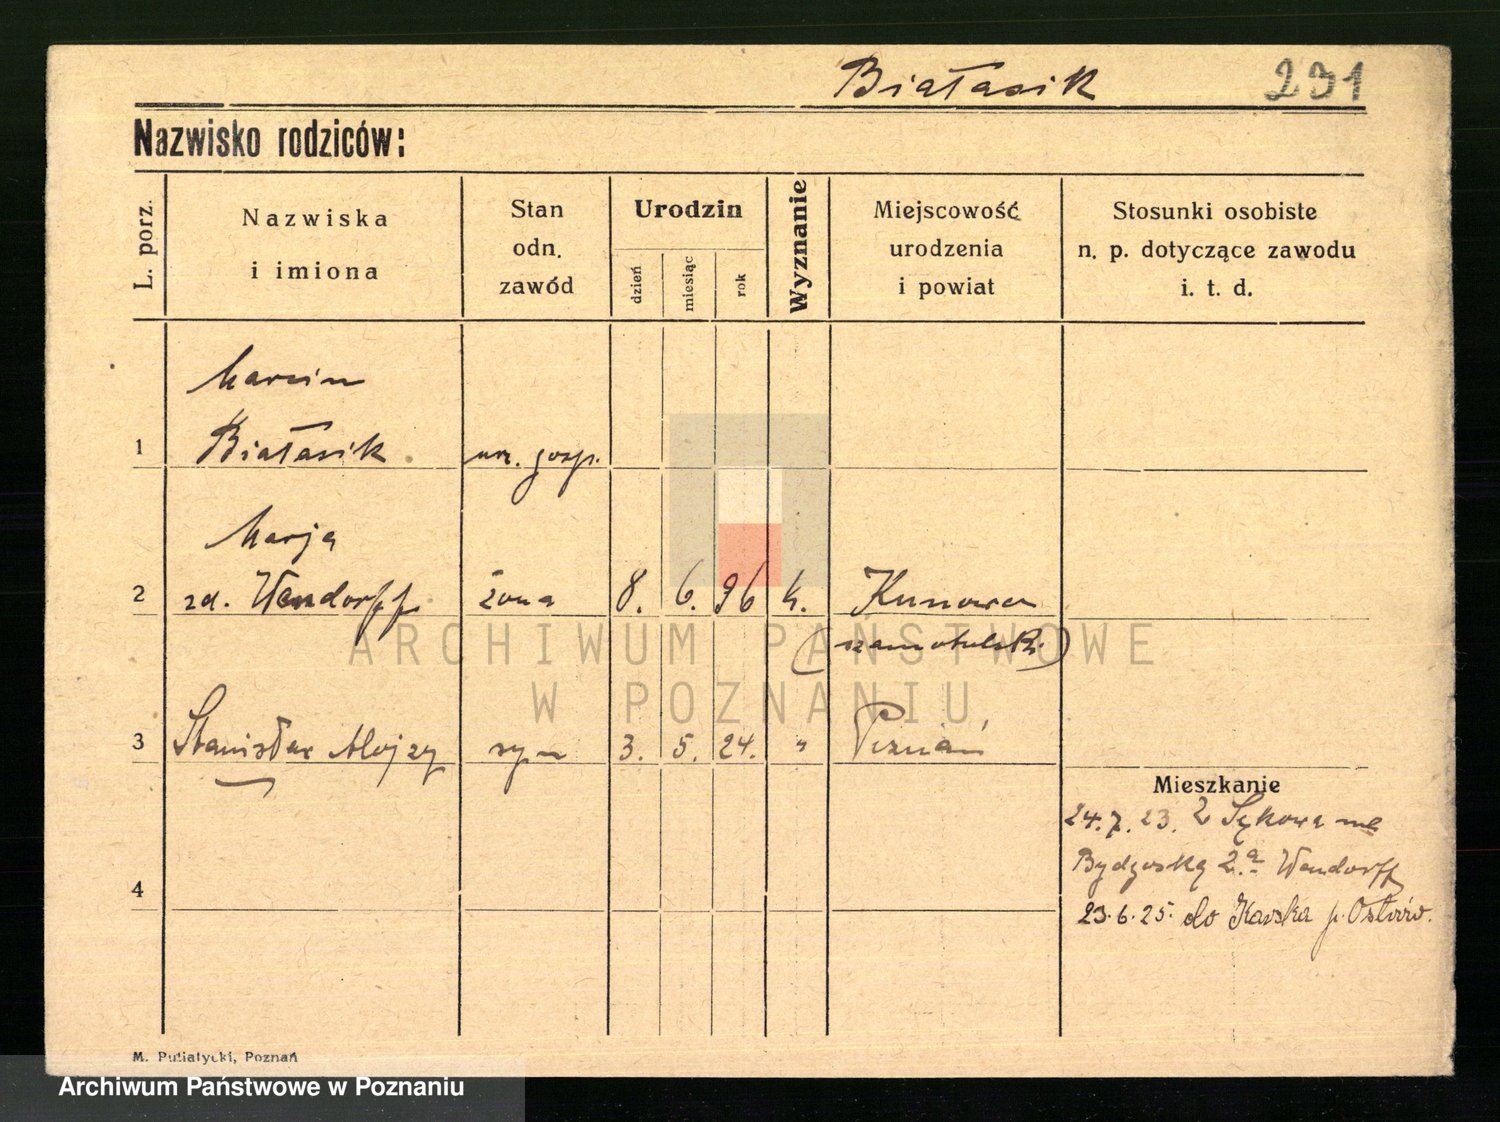 Białasik 291
Nazwisko rodziców:
L. porz.
Nazwiska
i imiona
Stan
odn.
zawód
Urodzin
dzień
miesiąc
rok
Wyznanie
Miejscowość
urodzenia
i powiat
Stosunki osobiste
n. p. dotyczące zawodu
i. t. d.
Marcin
1 Białasik urz. gosp.
Marja
2 zd. Wendorff żona 8. 6. 96 k. Kunowo
(szamotulski)
3 Stanisław Alojzy syn 3. 5. 24. " Poznań
Mieszkanie
24.7.23. Z Sękowa na
Bydgoską 2.a Wendorff
4
23.6.25. do p. Ostrów.
M. Putiatycki, Poznań
ARCHIWUM PAŃSTWOWE
W POZNANIU
Archiwum Państwowe w Poznaniu